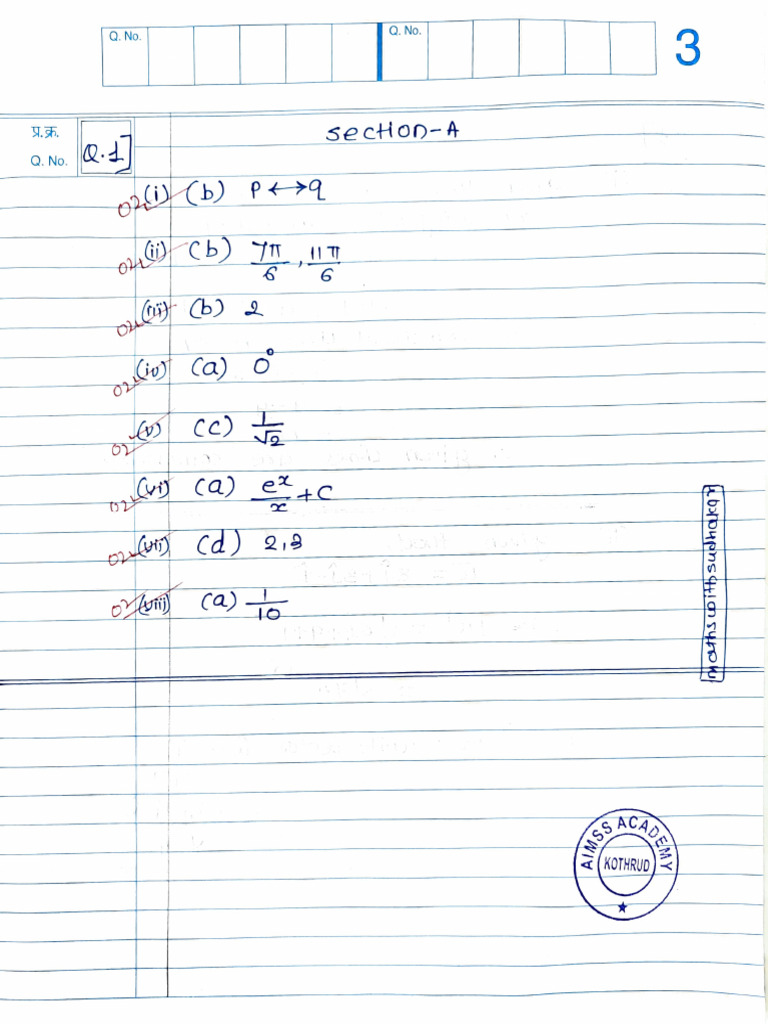 Q. No.
Q. No.
3
प्र.क्र.
Q. No.
Q.1]
Section-A
02 (i) (b) P ↔ q
02 (ii) (b) 7π/6, 11π/6
02 (iii) (b) 2
02 (iv) (a) 0°
02 (v) (c) 1/√2
02 (vi) (a) eˣ/x + c
02 (vii) (d) 2,3
02 (viii) (a) 1/10
mathswithsudhakar
AIMSS ACADEMY
KOTHRUD